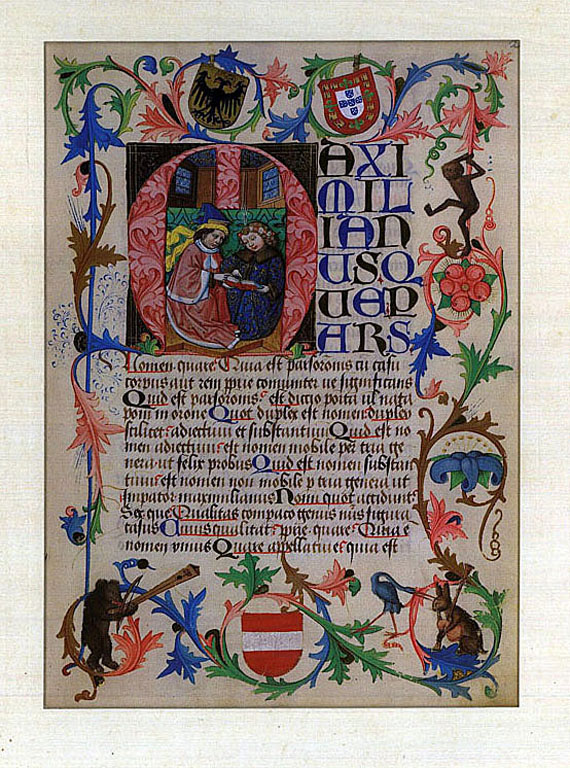 MAXI
MIL
IAN
USQ
UEP
ARS
Nomen quare Quia est parsoronis cu casu
corpus aut rem prie comuniter ue significans
Quid est parsoronis est dictio posita ul nata
poni in orone Quot duplex est nomen duplex
scilicet adiectiuum et substantiuum Quid est no
men adiectiuum est nomen mobile per tria ge
nera ut felix probus Quid est nomen substan
tiuum est nomen non mobile p tria genera ut
Impator maximilianus Nomi quot accidunt
Sex que Qualitas compaco genus nus figura
casus Cuius qualitatis prie quare Quia e
nomen vnius Quare appellatiue quia est